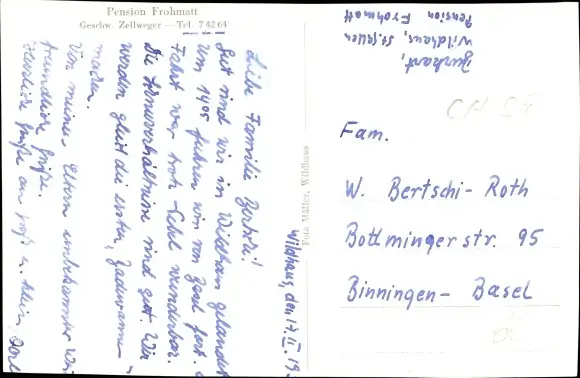 Pension Frohmatt
Geschw. Zellweger — Tel. 7 42 64
Wildhaus, den 17. II. 19
Liebe Familie Bertschi!
Gut sind wir in Wildhaus gelandet
um 14⁰⁵ fuhren wir von Basel fort.
Fahrt war trotz Nebel wunderbar.
Die Schneeverhältnisse sind gut. Wir
werden gleich die ersten
machen.
Von meinen Eltern unbekannter Weise
freundliche Grüsse.
Herzliche Grüsse an gross u. klein,
Foto Müller, Wildhaus
Burkart,
Wildhaus, St. Gallen
Pension Frohmatt
CH
Fam.
W. Bertschi-Roth
Bottmingerstr. 95
Binningen - Basel